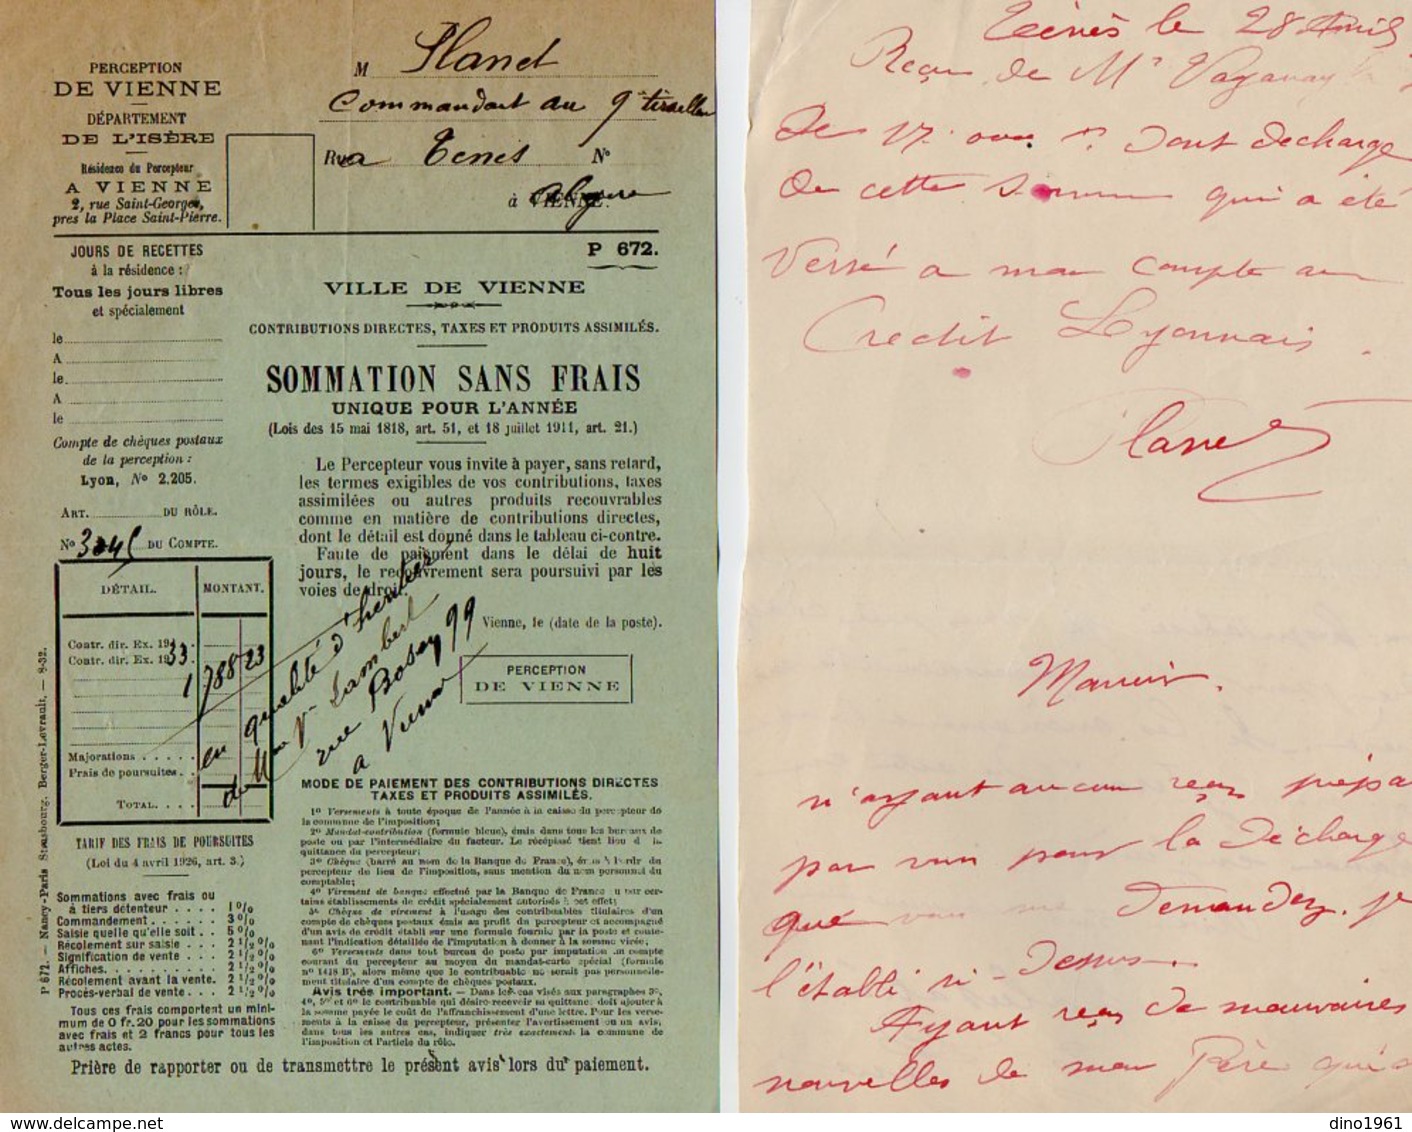 PERCEPTION
DE VIENNE
DÉPARTEMENT
DE L'ISÈRE
Résidence du Percepteur
A VIENNE
2, rue Saint-Georges,
près la Place Saint-Pierre.
M Planet
Commandant au 9e tirailleu
Rue a Ténès No
à VIENNE. Algérie
P 672.
JOURS DE RECETTES
à la résidence :
Tous les jours libres
et spécialement
le
A
le
A
le
Compte de chèques postaux
de la perception :
Lyon, No 2.205.
ART. DU RÔLE.
No DU COMPTE.
DÉTAIL. MONTANT.
Contr. dir. Ex. 19
Contr. dir. Ex. 1933
1788 23
Majorations
Frais de poursuites
TOTAL
TARIF DES FRAIS DE POURSUITES
(Loi du 4 avril 1926, art. 3.)
Sommations avec frais ou
à tiers détenteur . . . . 1 0/0
Commandement . . . . . . 3 0/0
Saisie quelle qu'elle soit . . 5 0/0
Récolement sur saisie . . . 2 1/2 0/0
Signification de vente . . . 2 1/2 0/0
Affiches. . . . . . . . . . 2 1/2 0/0
Récolement avant la vente. 2 1/2 0/0
Procès-verbal de vente . . . 2 1/2 0/0
Tous ces frais comportent un mini-
mum de 0 fr. 20 pour les sommations
avec frais et 2 francs pour tous les
autres actes.
P 672. — Nancy-Paris Strasbourg, Berger-Levrault, — 8-32.
VILLE DE VIENNE
CONTRIBUTIONS DIRECTES, TAXES ET PRODUITS ASSIMILÉS.
SOMMATION SANS FRAIS
UNIQUE POUR L'ANNÉE
(Lois des 15 mai 1818, art. 51, et 18 juillet 1911, art. 21.)
Le Percepteur vous invite à payer, sans retard,
les termes exigibles de vos contributions, taxes
assimilées ou autres produits recouvrables
comme en matière de contributions directes,
dont le détail est donné dans le tableau ci-contre.
Faute de paiement dans le délai de huit
jours, le recouvrement sera poursuivi par les
voies de droit.
Vienne, le (date de la poste).
PERCEPTION
DE VIENNE
en qualité d'héritier
de Mme Vve Lambert
rue Bosey 99
a Vienne
MODE DE PAIEMENT DES CONTRIBUTIONS DIRECTES
TAXES ET PRODUITS ASSIMILÉS.
1o Versements à toute époque de l'année à la caisse du percepteur de
la commune de l'imposition;
2o Mandat-contribution (formule bleue), émis dans tous les bureaux de
poste ou par l'intermédiaire du facteur. Le récépissé tient lieu de la
quittance du percepteur;
3o Chèque (barré au nom de la Banque de France), émis à l'ordre du
percepteur du lieu de l'imposition, sans mention du nom personnel du
comptable;
4o Virement de banque effectué par la Banque de France ou par cer-
tains établissements de crédit spécialement autorisés à cet effet;
5o Chèque de virement à l'usage des contribuables titulaires d'un
compte de chèques postaux émis au profit du percepteur et accompagné
d'un avis de crédit établi sur une formule fournie par la poste et conte-
nant l'indication détaillée de l'imputation à donner à la somme virée;
6o Versements dans tout bureau de poste par imputation au compte
courant du percepteur au moyen du mandat-carte spécial (formule
no 1418 B), alors même que le contribuable ne serait pas personnelle-
ment titulaire d'un compte de chèques postaux.
Avis très important. — Dans les cas visés aux paragraphes 3o,
4o, 5o et 6o le contribuable qui désire recevoir sa quittance doit ajouter à
la somme payée le coût de l'affranchissement d'une lettre. Pour les verse-
ments à la caisse du percepteur, présenter l'avertissement ou un avis,
dans tous les autres cas, indiquer très exactement la commune de
l'imposition et l'article du rôle.
Prière de rapporter ou de transmettre le présent avis lors du paiement.
Ténès le 28 Avril
Reçu de Mr Vaganay
de 17.000 frs dont décharge
de cette somme qui a été
Versé a mon compte au
Credit Lyonnais.
Planet
Monsieur.
n'ayant aucun reçu prépa
par vous pour la décharge
que vous me demandez. je
l'établi ci-dessus.
Ayant reçu de mauvaises
nouvelles de mon Père qui
dino1961